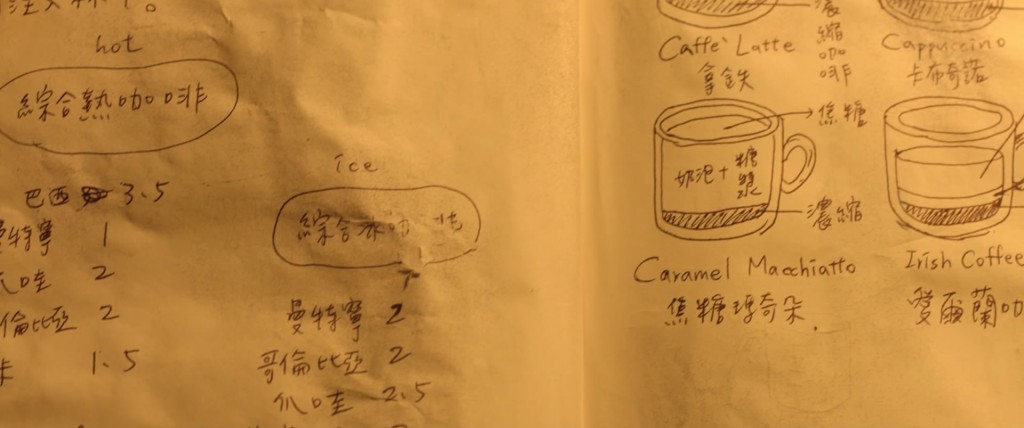 hot
綜合熱咖啡
巴西 3.5
曼特寧 1
爪哇 2
倫比亞 2
卡 1.5
ice
綜合冰咖啡
曼特寧 2
哥倫比亞 2
爪哇 2.5
濃縮咖啡
Caffe' Latte
拿鉄
Cappuccino
卡布奇諾
焦糖
奶泡+糖漿
濃縮
Caramel Macchiatto
焦糖瑪奇朵.
Irish Coffee
愛爾蘭咖